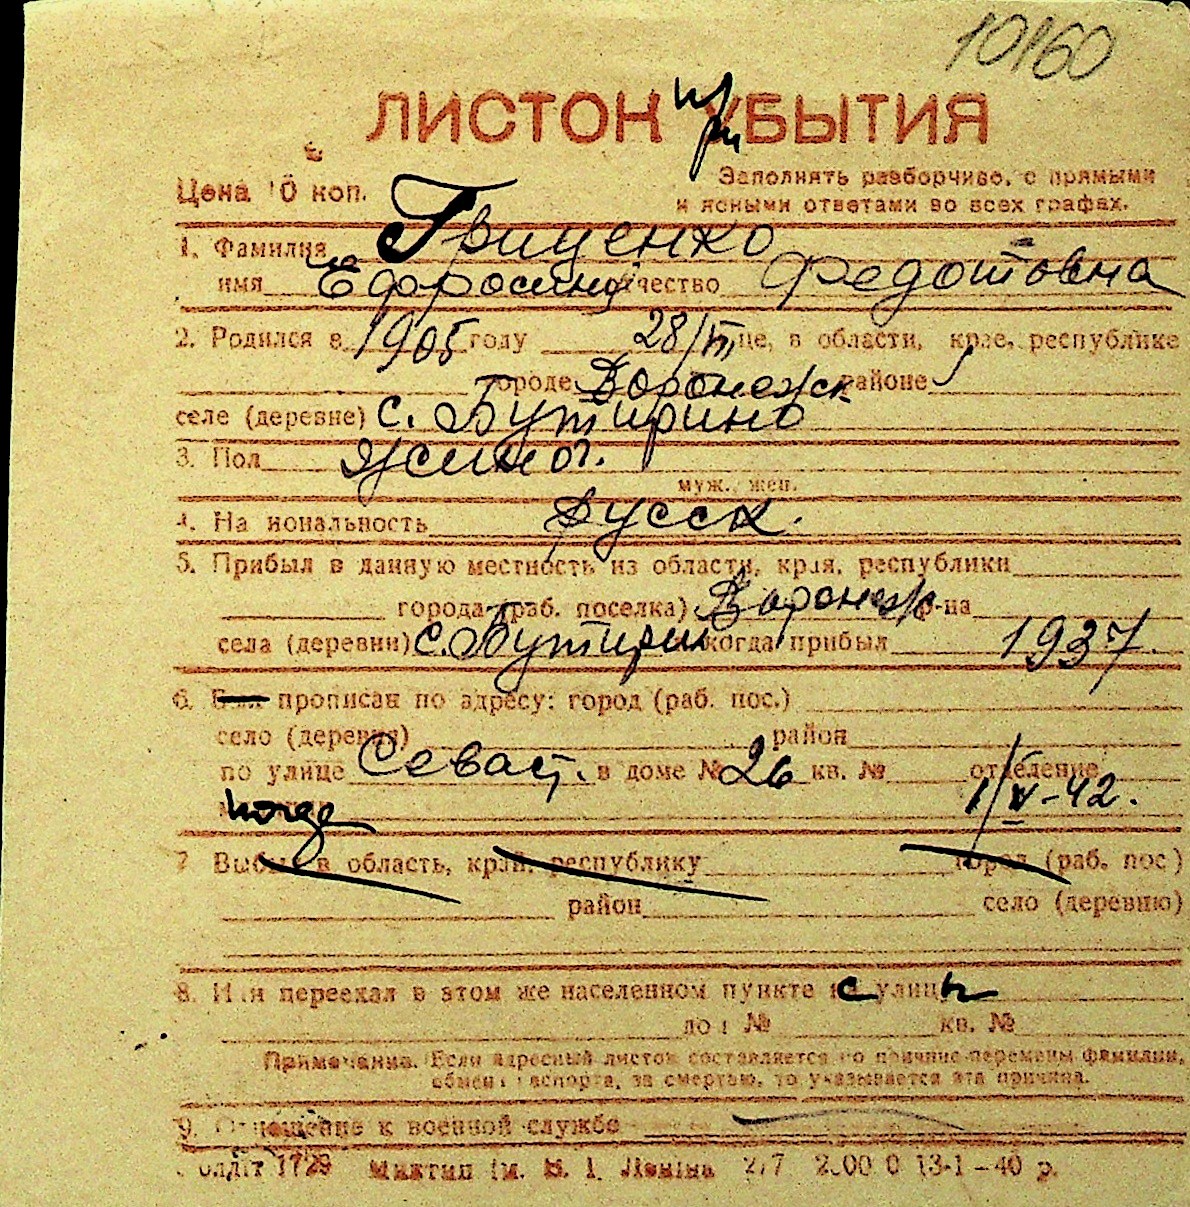 10160
ЛИСТОК при УБЫТИЯ
Цена 10 коп.
Заполнять разборчиво, с прямыми
и ясными ответами во всех графах.
1. Фамилия Гриценко
имя Ефросинья отчество Федотовна
2. Родился в 1905 году 28/III це, в области, крае, республике
городе Воронежск районе
селе (деревне) с. Бутирино
3. Пол женск.
муж. жен.
4. Национальность русск.
5. Прибыл в данную местность из области, края, республики
города (раб. поселка) Воронеж р-на
села (деревни) с. Бутирин когда прибыл 1937.
6. Был прописан по адресу: город (раб. пос.)
село (деревня) район
по улице Севаст. в доме № 26 кв. № отделение
когда 1/IV-42.
7 Выбыл в область, край, республику город (раб. пос)
район село (деревню)
8. Или переехал в этом же населенном пункте с улицы
дом № кв. №
Примечание. Если адресный листок составляется по причине перемены фамилии,
обмена паспорта, за смертью, то указывается эта причина.
9. Отношение к военной службе
1729 ім. В. І. Леніна 277 2000 0 13-1-40 р.